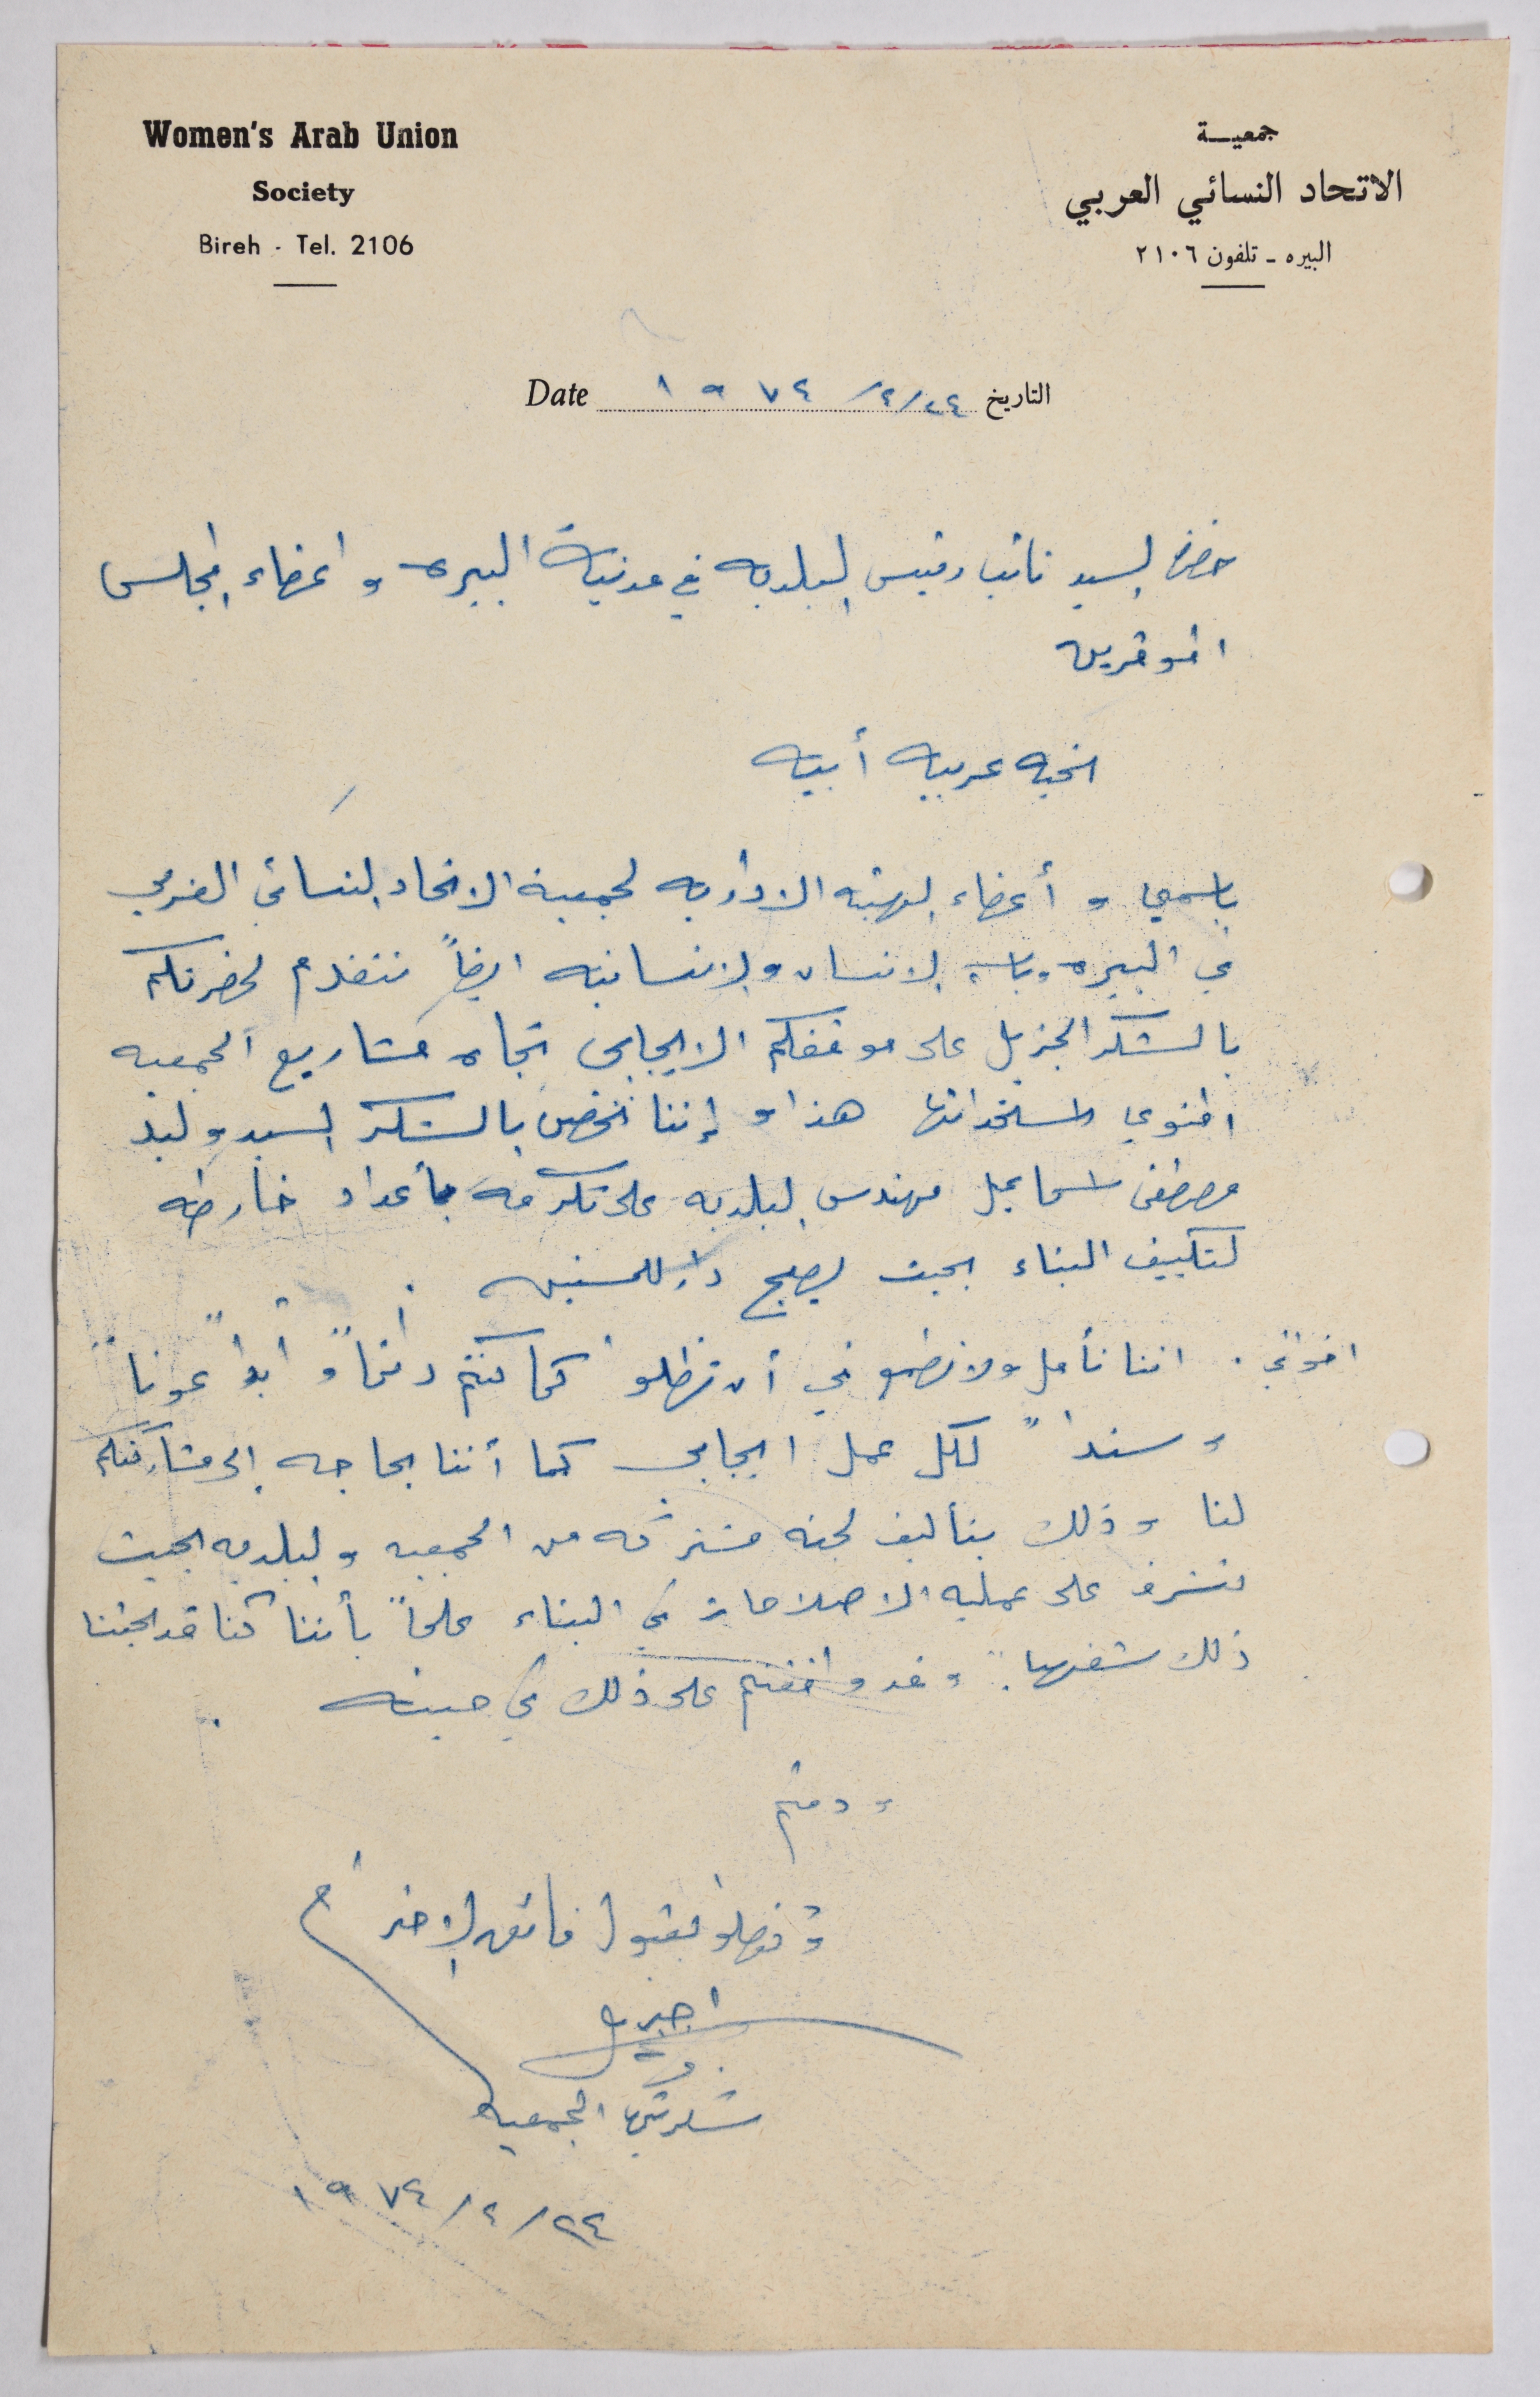 Women's Arab Union
Society
Bireh - Tel. 2106
جمعيـــة
الاتحاد النسائي العربي
البيره - تلفون ٢١٠٦
Date ١٩٧٤/٢/٢٤ التاريخ
حضرة السيد نائب رئيس البلديه في مدينة البيره و اعضاء المجلس
الموقرين
تحيه عربيه أبيه
باسمي و أعضاء الهيئه الاداريه لجمعية الاتحاد النسائي العربي
في البيره وباسم الانسان والانسانيه ايضاً نتقدم لحضرتكم
بالشكر الجزيل على موقفكم الايجابي تجاه مشاريع الجمعيه
المنوي استحداثها هذا و إننا نخص بالشكر السيد وليد
مصطفى اسماعيل مهندس البلديه على تكرمه بأعداد خارطه
لتكييف البناء بحيث يصبح داراً للمسنين .
اخواني . اننا نأمل ونطمع في أن تظلوا كما كنتم دائماً و أبداً عوناً
و سنداً لكل عمل ايجابي كما أننا بحاجه إلى مشاركتكم
لنا و ذلك بتأليف لجنه مشتركه من الجمعيه و البلديه بحيث
تشرف على عمليه الاصلاحات في البناء علماً بأننا كنا قد بحثنا
ذلك شفهياً و قد وافقتم على ذلك في حينه .
و دمتم
وتفضلوا بقبول فائق الاحترام
الجمعيه
١٩٧٤/٢/٢٤